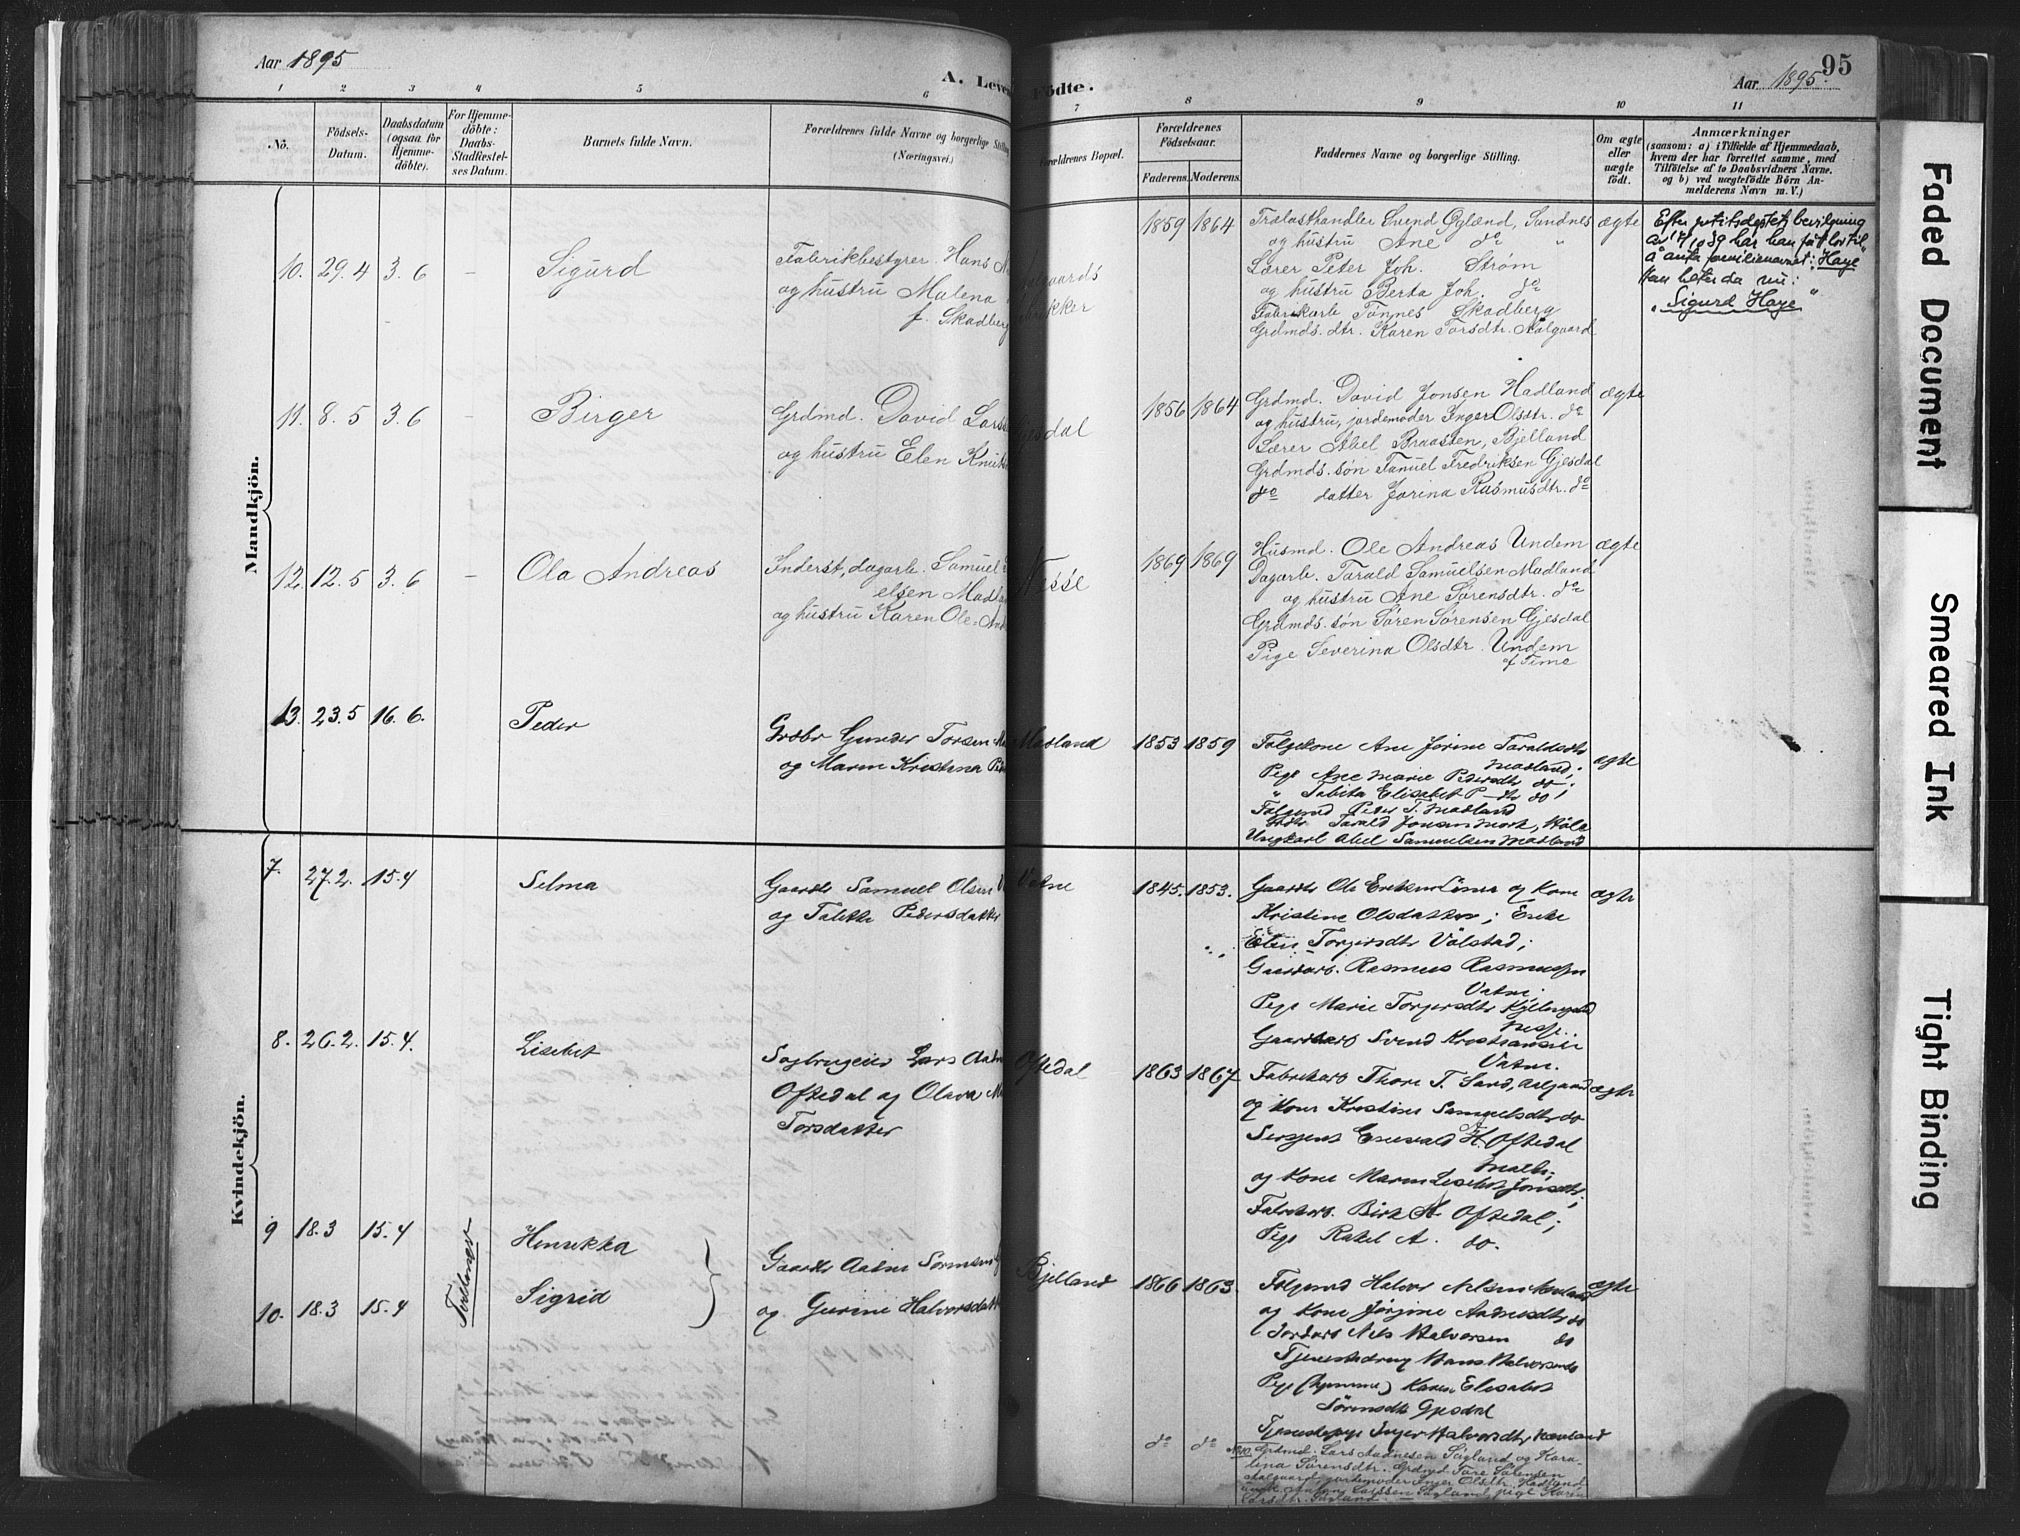 Aar 1895
A. Leven
Födte.
Aar 1895.
95
1 2 3 4 5 6 7 8 9 10 11
No.
Födsels-
Datum.
Daabsdatum
(ogsaa for
Hjemme-
döbte).
For Hjemme-
döbte:
Daabs-
Stadfæstel-
ses Datum.
Barnets fulde Navn.
Forældrenes fulde Navne og borgerlige Stilling
(Næringsvei.)
Forældrenes Bopæl.
Forældrenes
Födselsaar.
Faderens. Moderens.
Faddernes Navne og borgerlige Stilling.
Om ægte
eller
uægte
födt.
Anmærkninger
(saasom: a) i Tilfælde af Hjemmedaab,
hvem der har forrettet samme, med
Tilföielse af to Daabsvidners Navne.
og b) ved uægtefödte Börn An-
melderens Navn m. V.)
Mandkjön.
10. 29.4 3.6 — Sigurd
Fabrikbestyrer. Hans
og hustru Malena
f. Skadberg
1859 1864
Trælasthandler Svend Øglænd, Sandnes
og hustru Ane do "
Lærer Peter Joh. Strøm
og hustru Berta Joh. do
Fabrikarb Tønnes Skadberg
Grdmds. dtr. Karen Torsdtr. Aalgaard
ægte
Efter justitsdeptets bevilgning
av 17/10 39 har han fåt lov til
å anta familienavnet: "Haye"
Han heter da nu:
"Sigurd Haye"
11. 8.5 3.6 — Birger
Grdmd. David Lars
og hustru Elen Knut
Gjesdal
1856 1864
Grdmd. David Jonsen Hadland
og hustru, jordemoder Inger Olsdtr. do
Lærer Abel Braasten, Bjelland
Grdmds. søn Tanuel Fredriksen Gjesdal
do datter Jorina Rasmusdtr. do
ægte
12. 12.5 3.6 — Ola Andreas
Inderst, dagarb. Samuel
elsen Madla
og hustru Karen Ole-And
Nesse
1869 1869
Husmd. Ole Andreas Undem
Dagarb. Tarald Samuelsen Madland
og hustru Ane Sørensdtr. do
Grdmds. søn Søren Sørensen Gjesdal
Pige Severina Olsdtr. Undem
af Time
ægte
13. 23.5 16.6. Peder
Grdbr Gunder Torsen Ma
og Maren Kristina Pe
Madland
1853 1859
Folgekone Ane Jorine Taraldsdtr
Madland;
Pige Ane Marie Pedersdtr do;
" Tabita Elisabet P—dtr do;
Folgemd Peder T. Madland
Tarald Jonsen
Ungkarl Abel Samuelsen Madland
ægte
Kvindekjön.
7. 27.2. 15.4 Selma
Gaardbr Samuel Olsen V
og Talette Pedersdatter
Vatne
1845. 1853.
Gaardbr Ole Eriksen Limer og Kone
Kristine Olsdatter; Enke
Elen Torgersdtr Vølstad;
Gaardarb. Rasmus Rasmussen
Vatne.
Pige Marie Torgersdtr
Nesse.
Gaardarb Svend Kristiansen
Vatne.
ægte
8. 26.2. 15.4. Lisebet
Sagbrugeier Lars Aadn
Oftedal og Olava M
Torsdatter
Oftedal
1863 1867
Fabrikarb Thore T. Sand, Aalgaard
og Kone Kristine Samuelsdtr do
Sergent Enevald H. Oftedal
og Kone Maren Lisebet Jonsdtr;
Fabrikarb. Birk A. Oftedal;
Pige Rakel A. do.
ægte
9 18.3 15.4 Henrikka
10. 18.3 15.4 Sigrid
Tvillinger
Gaardbr Aadne Sørensen
og Gurine Halvorsdatt
Bjelland
1866 1863.
Folgemd Halvor Nilsen Hævland
og Kone Jørgine Aadnesdtr do
Jordarb Nils Halvorsen do
Tjenestedreng Hans Halvorsen do
Pige (hjemme) Karen Elisabet
Sørensdtr Gjesdal
Tjenestepige Inger Halvorsdtr Hævland
ægte
do do
No 10. Grdmd. Lars Aadnesen Søyland og Kara-
lena Sørensdtr. Grdmd Tore Sørensen
Aalgaard, jordemoder Inger Olsdtr. Hadland
ungk. Larssen Søyland, pige Karen
Larsdtr. Søyland.
Faded Document
Smeared Ink
Tight Binding